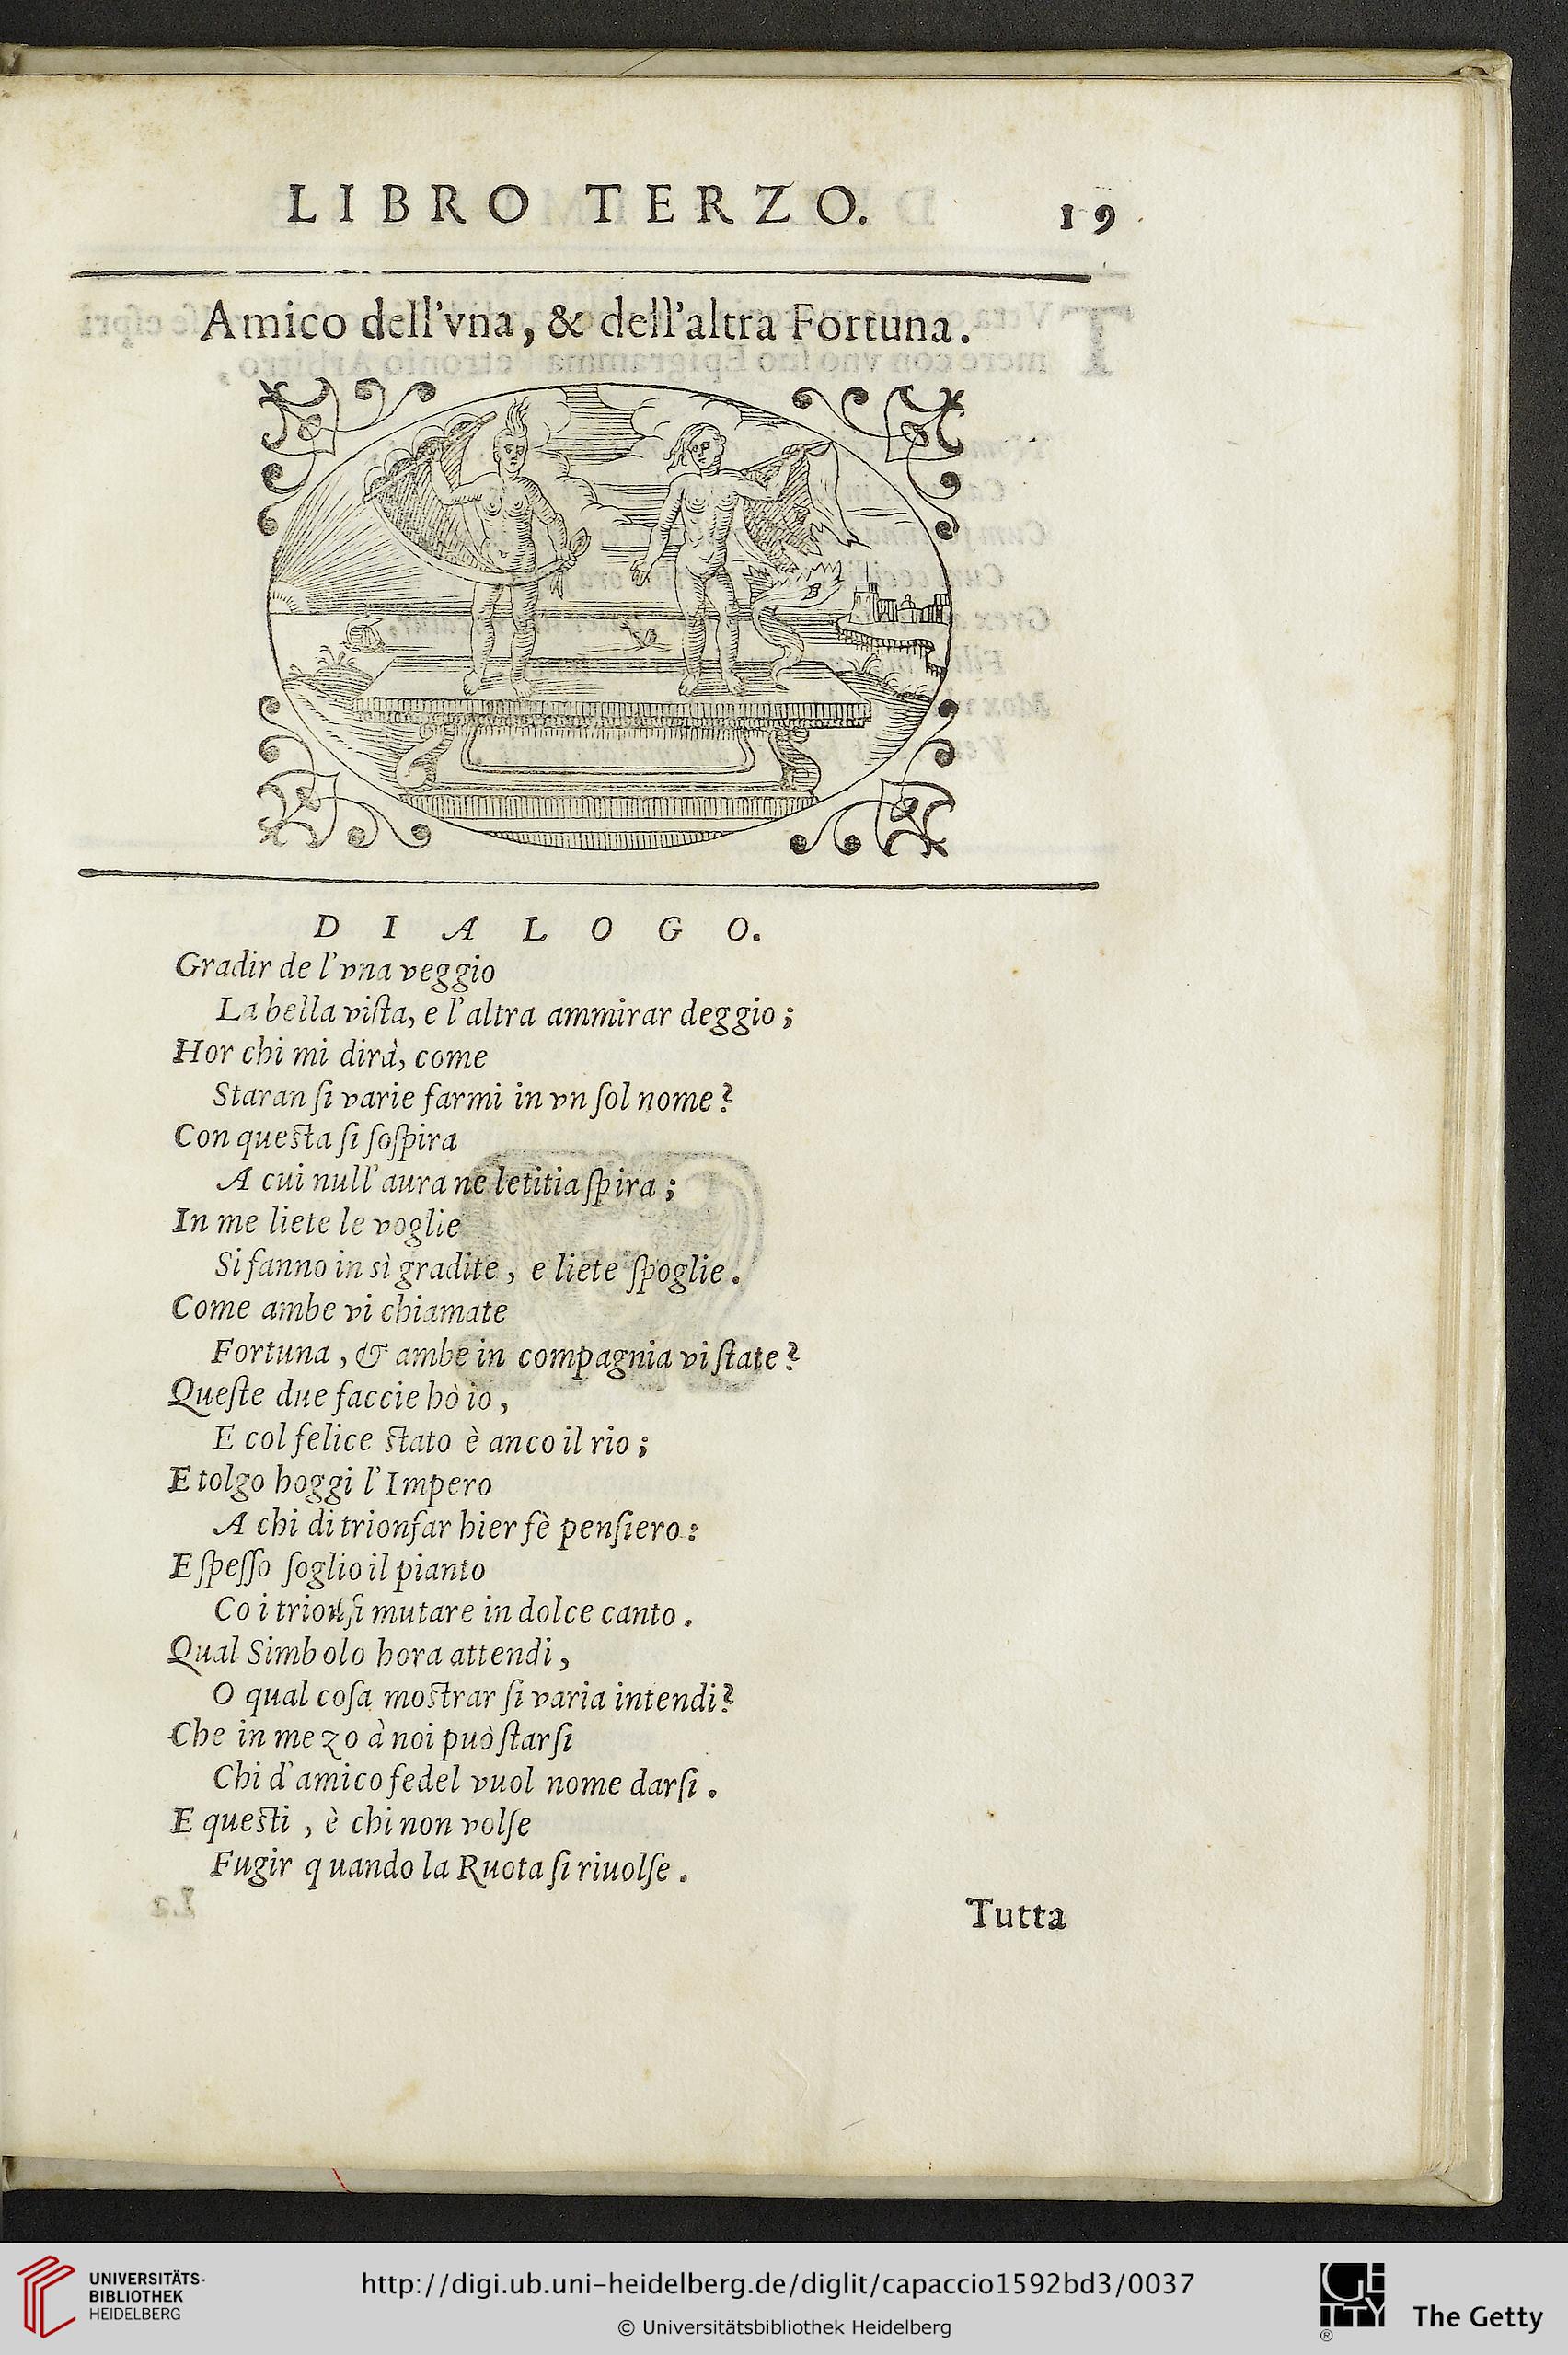 LIBRO TERZO. 19
Amico dell'vna, & dell'altra Fortuna.
DIALOGO.
Gradir de l'vna veggio
La bella viſta, e l'altra ammirar deggio;
Hor chi mi dirà, come
Staran ſi varie farmi in vn ſol nome?
Con queſta ſi ſoſpira
A cui null'aura ne letitia ſpira;
In me liete le voglie
Si fanno in sì gradite, e liete ſpoglie.
Come ambe vi chiamate
Fortuna, & ambe in compagnia vi ſtate?
Queſte due faccie hò io,
E col felice ſtato è anco il rio;
E tolgo hoggi l'Impero
A chi di trionfar hier fè penſiero:
E ſpeſſo ſoglio il pianto
Co i mutare in dolce canto.
Qual Simbolo hora attendi,
O qual coſa moſtrar ſi varia intendi?
Che in mezo à noi può ſtarſi
Chi d'amico fedel vuol nome darſi.
E queſti, è chi non volſe
Fugir quando la Ruota ſi riuolſe.
Tutta
UNIVERSITÄTS-
BIBLIOTHEK
HEIDELBERG
http://digi.ub.uni-heidelberg.de/diglit/capaccio1592bd3/0037
© Universitätsbibliothek Heidelberg
GETTY
The Getty